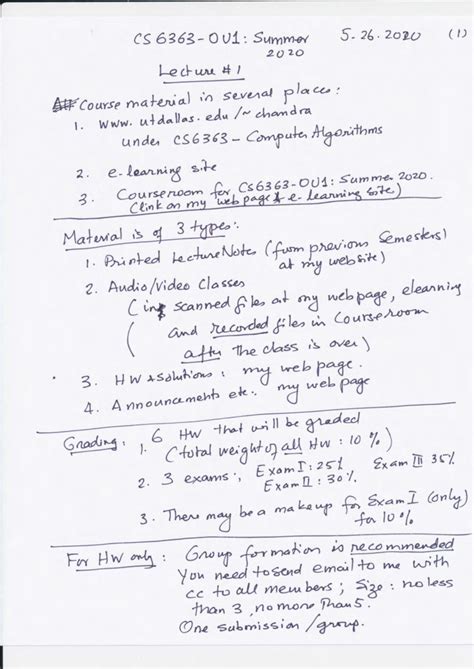 CS6363-0U1: Summer 2020 5.26.2020 (1)
Lecture #1
Course material in several places:
1. www.utdallas.edu/~chandra
under CS6363-Computer Algorithms
2. e-learning site
3. Courseroom for CS6363-0U1: Summer 2020.
(Clink on my webpage & e-learning site)
Material is of 3 types:
1. Printed Lecture Notes (from previous Semesters)
at my website)
2. Audio/Video Classes
(in scanned files at my webpage, elearning
(and recorded files in Courseroom
after The class is over)
3. HW & solutions: my web page.
4. Announcements etc: my web page
Grading: 1. 6 HW that will be graded
(total weight of all HW: 10%)
2. 3 exams: Exam I: 25% Exam III 35%
Exam II: 30%.
3. There may be a makeup for Exam I (only)
for 10%
For HW only: Group formation is recommended
You need to send email to me with
cc to all members; Size: no less
than 3, no more Than 5.
One submission/group.